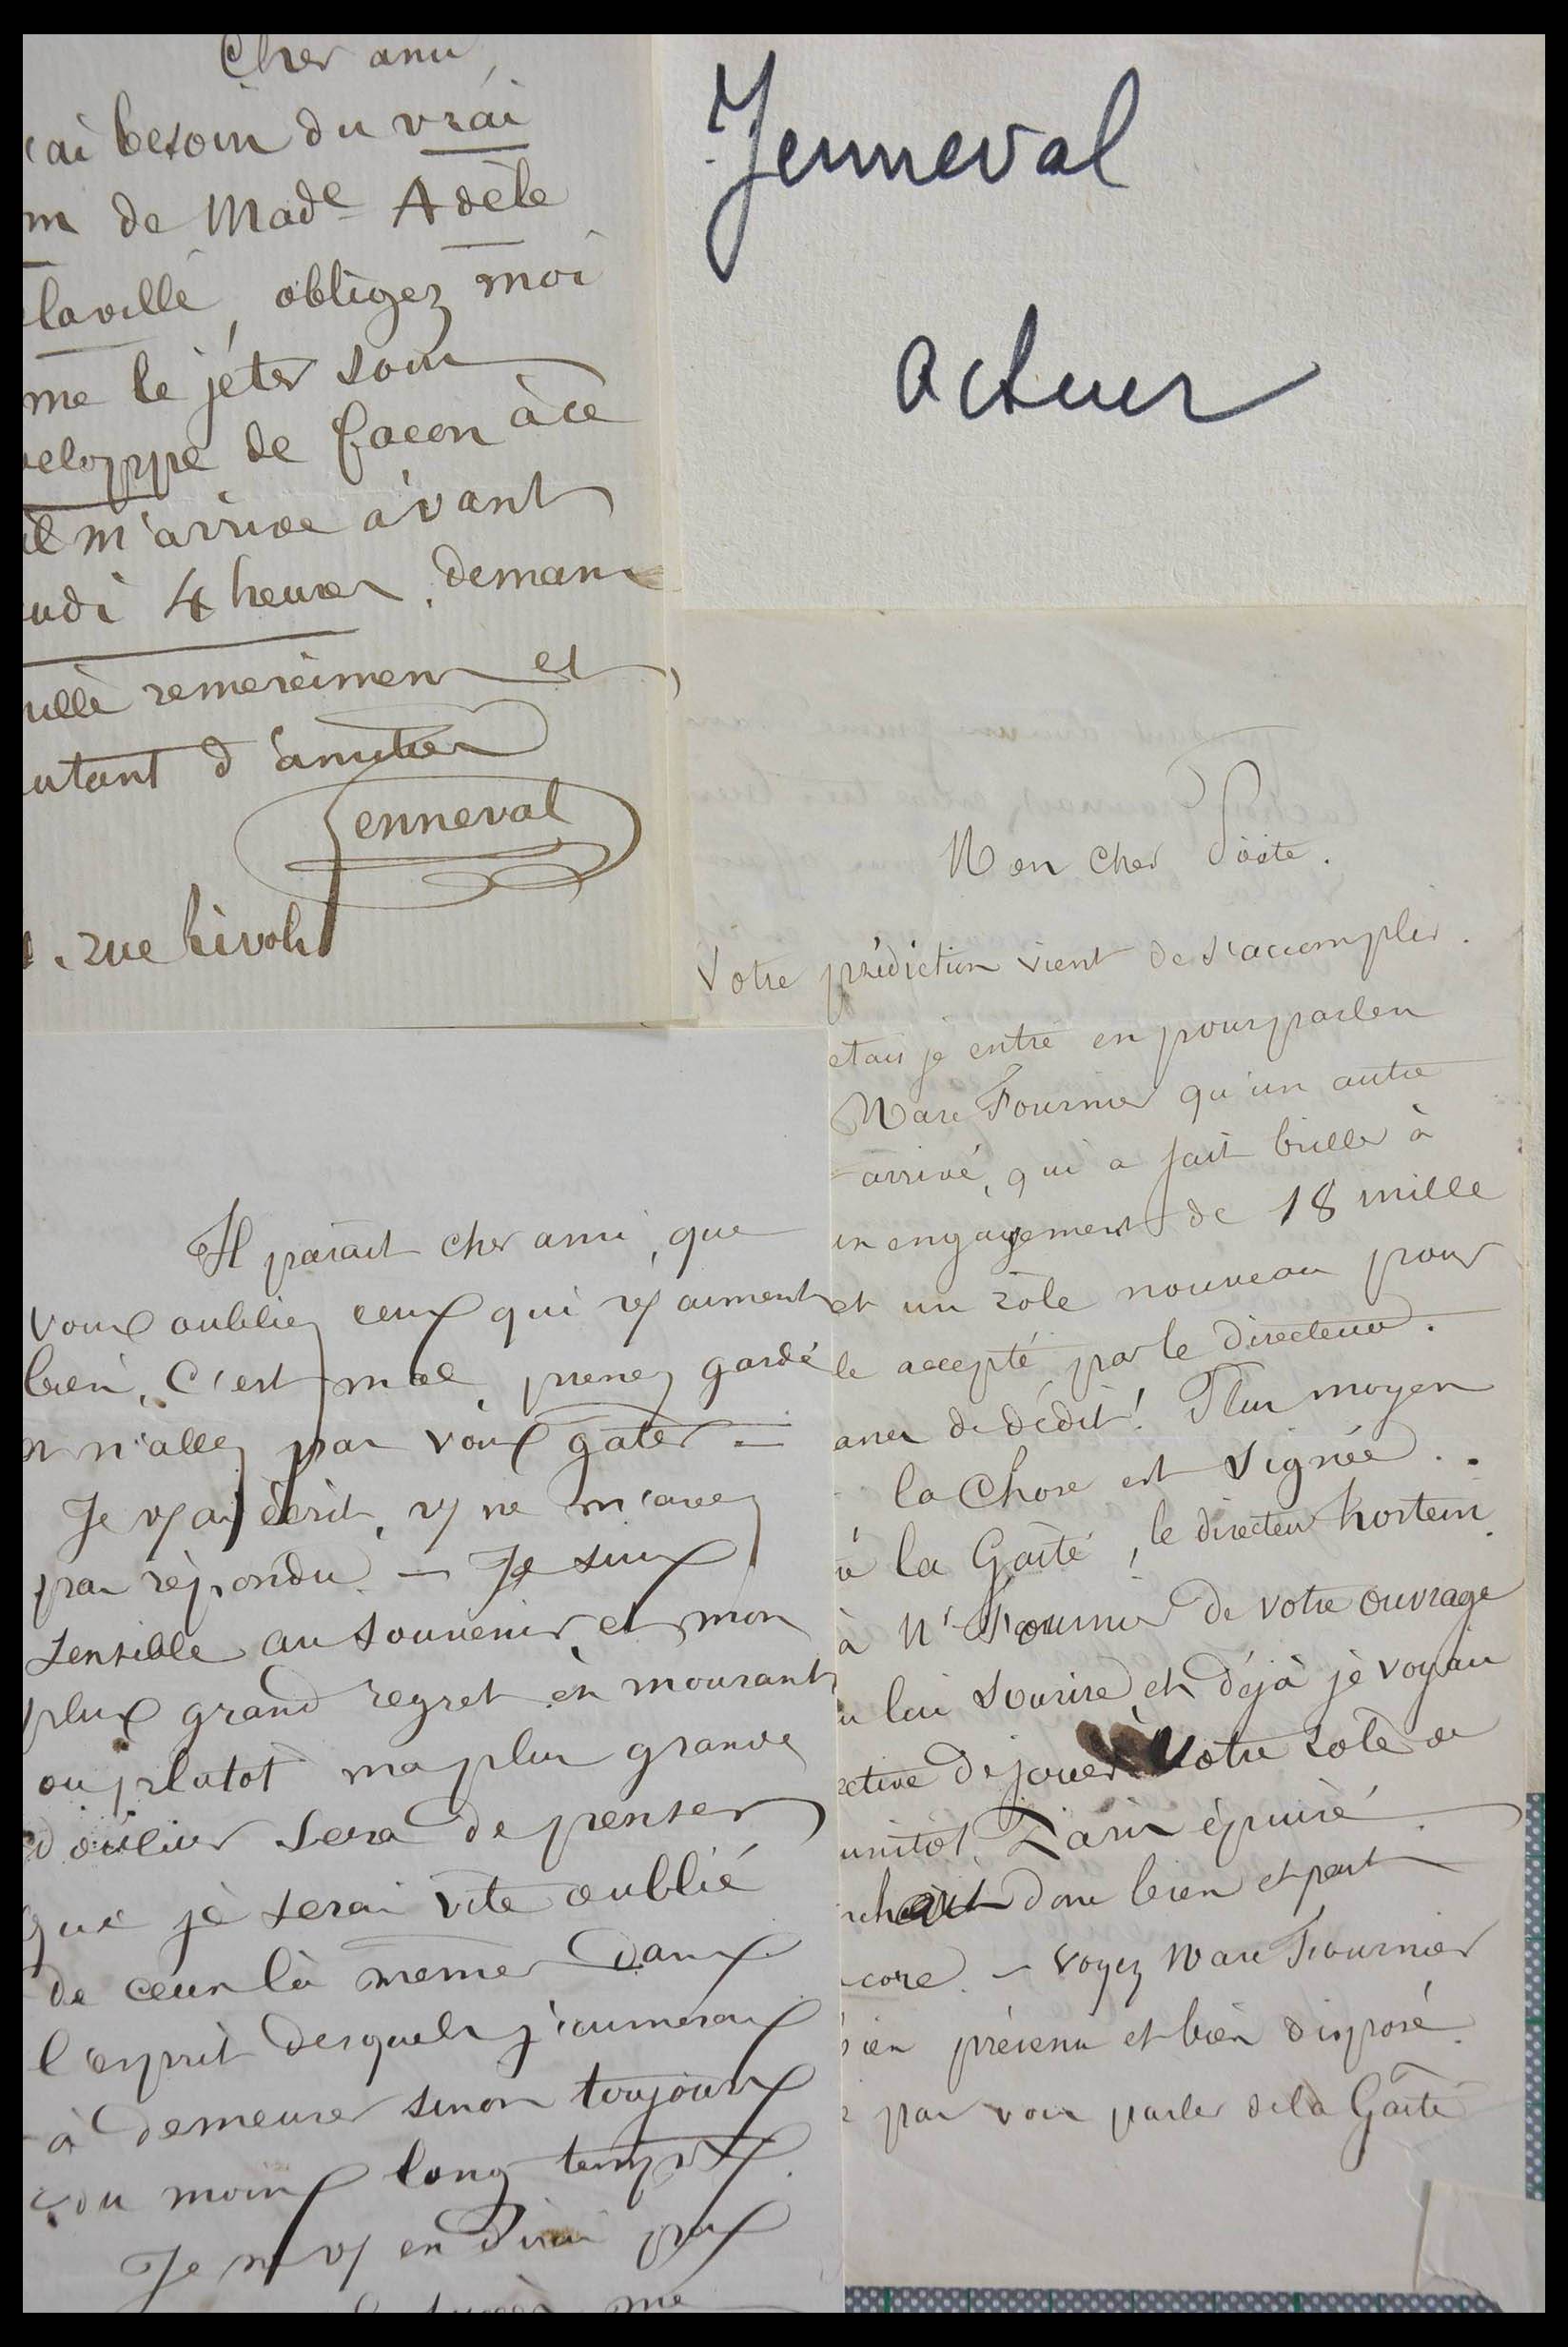 Cher ami,
'ai besoin du vrai
m de Made Adèle
laville, obligez moi
me le jéter sous
veloppe de facon à ce
il m'arrive avant
udi 4 heures. deman
mille remerciemens et
utant d'amitiés
Jenneval
. rue Rivoli
Jenneval
acteur
Mon cher Poëte.
Votre prédiction vient de s'accomplir.
etais je entré en pourparlers
Marc Fournier qu'un autre
arrivé, qui a fait briller à
un engagement de 18 mille
et un rôle nouveau pour
le accepté par le directeur.
de dédit! Plus moyen
la chose est signée..
à la Gaîté, le directeur hostein
à Mr Fournier de votre ouvrage
lui sourire et déjà je voyais
ective de jouer votre rôle ou
épuisé.
donc bien et part
core. - Voyez Marc Fournier
bien prévenu et bien disposé.
pas voir parler de la Gaîté
Il parait cher ami, que
vous oubliez ceux qui vs aiment
bien. C'est mal, prenez garde
n'allez pas vous gâter =
Je vs ai écrit, vs ne m'avez
pas répondu. - Je suis
sensible au souvenir et mon
plus grand regret en mourant
ou plutot ma plus grande
douleur sera de penser
que je serai vite oublié
de ceux là même dans
l'esprit desquels j'aimerais
à demeurer sinon toujours
du moins long temps.
Je ne vs en dirai pas
me